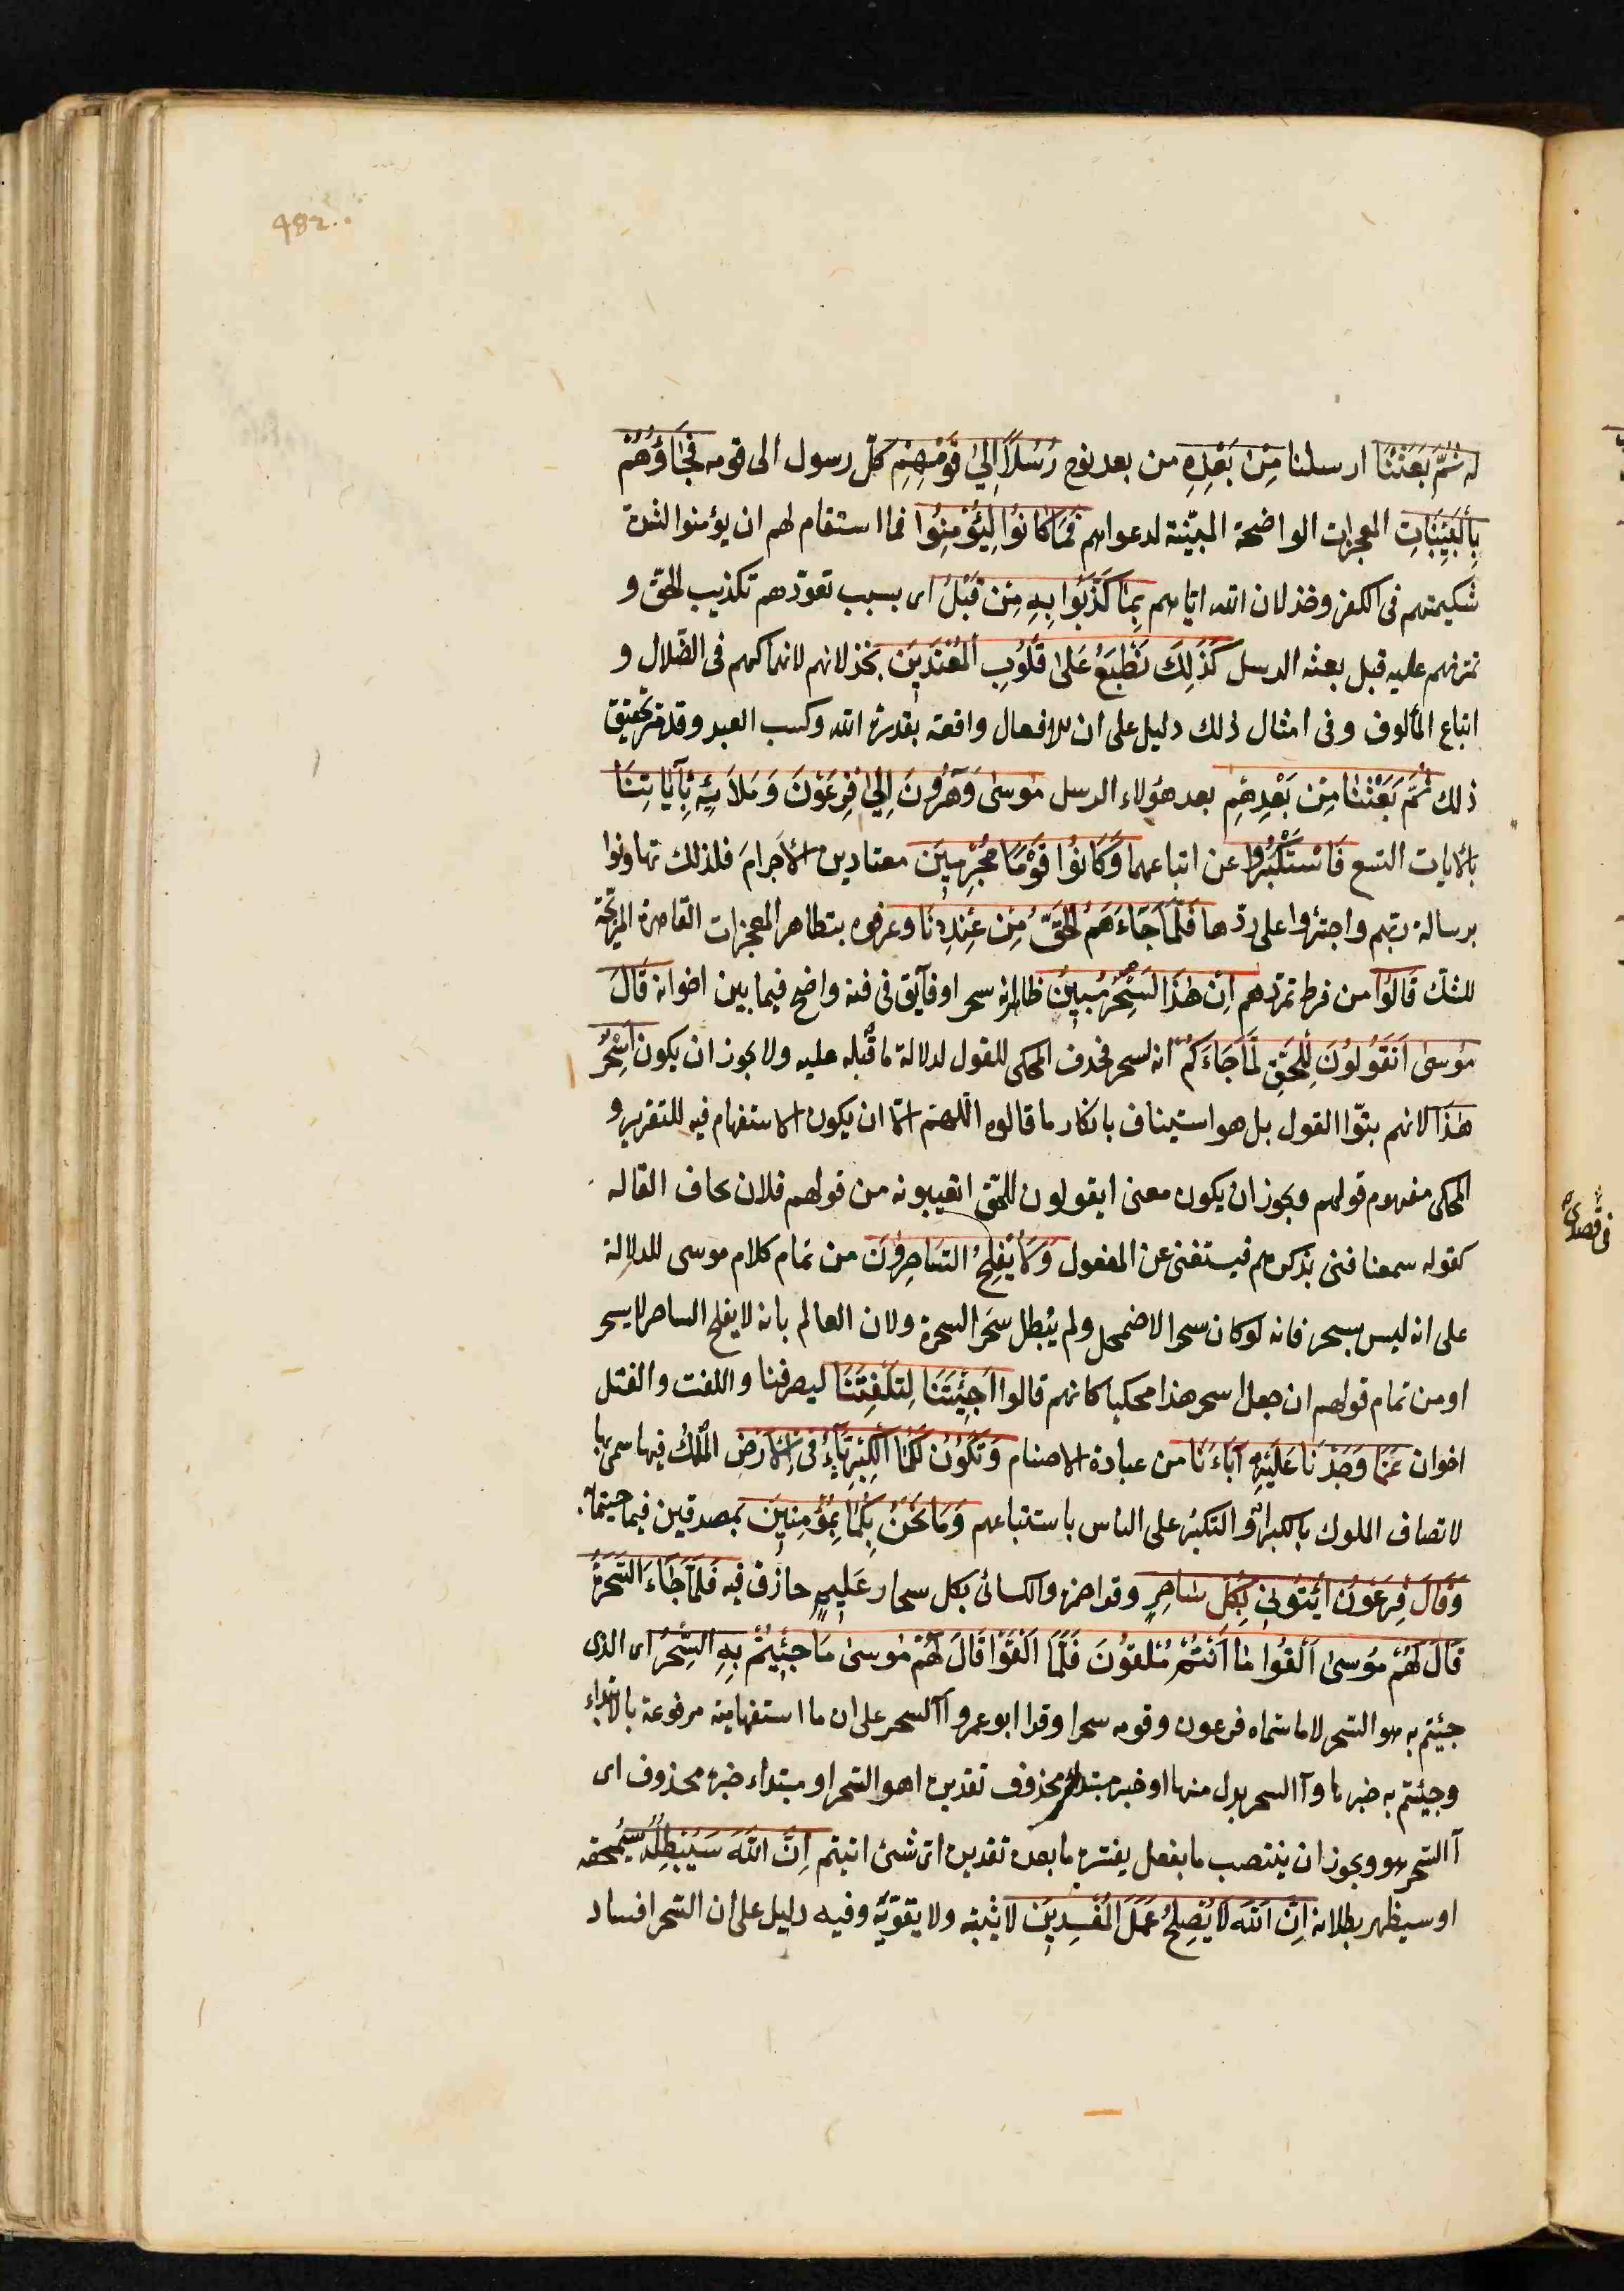 482
له ثُمَّ بَعَثْنَا ارسلنا مِنْ بَعْدِهِ من بعد نوح رُسُلاً اِلىٰ قَوْمِهِمْ كلّ رسول الى قومه فَجَاؤُهُمْ
بِالْبَيِّنَاتِ المعجزات الواضحة المبيّنة لدعواهم فَمَا كَانُوا لِيُؤْمِنُوا فما استقام لهم ان يؤمنوا لشدة
شكيمتهم فى الكفر وخذلان الله اياهم بِمَا كَذَّبُوا بِهِ مِنْ قَبْلُ اى بسبب تعوّدهم تكذيب الحقّ و
تمرنهم عليه قبل بعثه الرسل كَذٰلِكَ نَطْبَعُ عَلىٰ قُلُوبِ الْمُعْتَدِينَ بخذلانهم لانهماكهم فى الضّلال و
اتباع المألوف وفى امثال ذلك دليل على ان الافعال واقعة بقدرة الله وكسب العبد وقد مرّ تحقيق
ذلك ثُمَّ بَعَثْنَا مِنْ بَعْدِهِمْ بعد هؤلاء الرسل مُوسىٰ وَهٰرُونَ اِلىٰ فِرْعَوْنَ وَمَلَائِهِ بِآيَاتِنَا
بالايات التسع فَاسْتَكْبَرُوا عن اتباعهما وَكَانُوا قَوْمًا مُجْرِمِينَ معتادين الاجرامَ فلذلك تهاونوا
برسالة ربّهم واجترؤا على ردّها فَلَمَّا جَاءَهُمُ الْحَقُّ مِنْ عِنْدِنَا وعرفوه بتظاهر المعجزات القاهرة المزيحة
للشكّ قَالُوا من فرط تمرّدهم اِنَّ هٰذَا لَسِحْرٌ مُبِينٌ ظاهر انه سحر او فائق فى فنه واضح فيما بين اخوانه قَالَ
مُوسىٰ اَتَقُولُونَ لِلْحَقِّ لَمَّا جَاءَكُمْ انه لسحر فحذف المحكى للقول لدلالة ما قبله عليه ولا يجوز ان يكون اَسِحْرٌ
هٰذَا لانهم بتّوا القول بل هو استيناف بانكار ما قالوه اللهمّ الّا ان يكون الاستفهام فيه للتقرير و
المحكى مفهوم قولهم ويجوز ان يكون معنى اتقولون للحقّ اتعيبونه من قولهم فلان يخاف القاله
كقوله سمعنا فتى يذكرهم فيستغنى عن المفعول وَلَا يُفْلِحُ السَّاحِرُونَ من تمام كلام موسى للدلالة
على انه ليس بسحر فانه لو كان سحرا لاضمحل ولم يُبطل سحرَ السحرة ولان العالم بانه لا يفلح الساحر لا يسحر
او من تمام قولهم ان جعل اسحر هذا محكيا كانهم قالوا اَجِئْتَنَا لِتَلْفِتَنَا ليصرفنا واللفت والفتل
اخوان عَمَّا وَجَدْنَا عَلَيْهِ آبَاءَنَا من عبادة الاصنام وَتَكُونَ لَكُمَا الْكِبْرِيَاءُ فِى الْاَرْضِ المُلك فيها سمى بها
لاتصاف الملوك بالكبرا والتكبّر على الناس باستتباعهم وَمَا نَحْنُ لَكُمَا بِمُؤْمِنِينَ بمصدقين فيما جئتما به
وَقَالَ فِرْعَوْنُ ائْتُونِى بِكُلِّ سَاحِرٍ وقرا حمزة والكسائى بكل سحار عَلِيمٍ حاذق فيه فَلَمَّا جَاءَ السَّحَرَةُ
قَالَ لَهُمْ مُوسىٰ اَلْقُوا مَا اَنْتُمْ مُلْقُونَ فَلَمَّا اَلْقَوْا قَالَ لَهُمْ مُوسىٰ مَا جِئْتُمْ بِهِ السِّحْرُ اى الذى
جئتم به هو السّحر لا ما سمّاه فرعون وقومه سحرا وقرا ابو عمرو آلسحر على ان ما استفهامية مرفوعة بالابتداء
وجئتم به خبرها وآالسحر بدل منها او خبر مبتدأ محذوف تقديره اهو السّحر او مبتداء خبره محذوف اى
آالسّحر هو ويجوز ان ينتصب ما بفعل يفسّره ما بعده تقديره اىّ شئ اتيتم اِنَّ اللهَ سَيُبْطِلُهُ سيُمحقه
او سيظهر بطلانه اِنَّ اللهَ لَا يُصْلِحُ عَمَلَ الْمُفْسِدِينَ لا يثبته ولا يقوّيه وفيه دليل على ان السّحر افساد